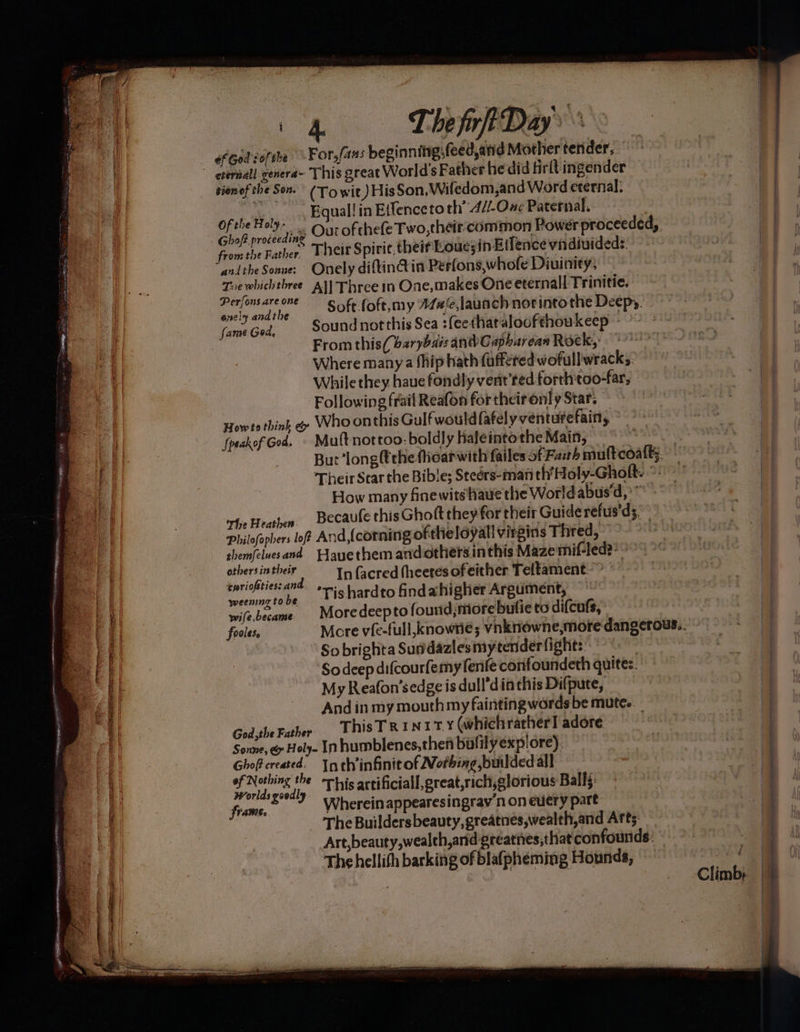 4 The first Day
of God: of the
eternall genera-
tion of the Son.
Of the Holy-
Ghost proceeding
from the Father,
and the Sonne:
The which three
Persons are one
onely and the
same God.
How to think &
speak of God.
The Heathen
Philosophers lost
themselues and
others in their
curiosities: and
weening to be
wise, became
fooles.
God, the Father
Sonne, & Holy-
Ghost created
of Nothing the
Worlds goodly
frame.
For, sans beginning, seed, and Mother tender,
This great World's Father he did first ingender
(To wit) His Son, Wisedom, and Word eternal,
Equall in Essence to th' All-One Paternal.
Out of these Two, their common Power proceeded,
Their Spirit, their Loue; in Essence vndiuided:
Onely distinct in Persons, whose Diuinity,
All Three in One, makes One eternall Trinitie.
Soft, soft, my Muse, launch not into the Deep,
Sound not this Sea: see that aloof thou keep
From this Charybdis and Capharean Rock,
Where many a ship hath suffered wofull wrack,
While they haue fondly vent'red forth too-far,
Following frail Reason for their only Star.
Who on this Gulf would safely venture fain,
Must not too-boldly hale into the Main,
But 'long the shoar with sailes of Faith must coast;
Their Star the Bible; Steers-man th' Holy-Ghost.
How many fine wits haue the World abus'd,
Because this Ghost they for their Guide refus'd;
And, scorning of the loyall virgins Thred,
Haue them and others in this Maze mis-led?
In sacred sheetes of either Testament
'Tis hard to find a higher Argument,
More deep to sound, more busie to discuss,
More vse-full, knowne; vnknowne, more dangerous.
So bright a Sun dazles my tender sight:
So deep discourse my sense confoundeth quite:
My Reason's edge is dull'd in this Dispute,
And in my mouth my fainting words be mute.
This TRINITY (which rather I adore
In humblenes, then busily explore)
In th' infinit of Nothing, builded all
This artificiall, great, rich, glorious Ball;
Wherein appeares ingrav'n on euery part
The Builders beauty, greatnes, wealth, and Art;
Art, beauty, wealth, and greatnes, that confounds
The hellish barking of blaspheming Hounds,
Climb,